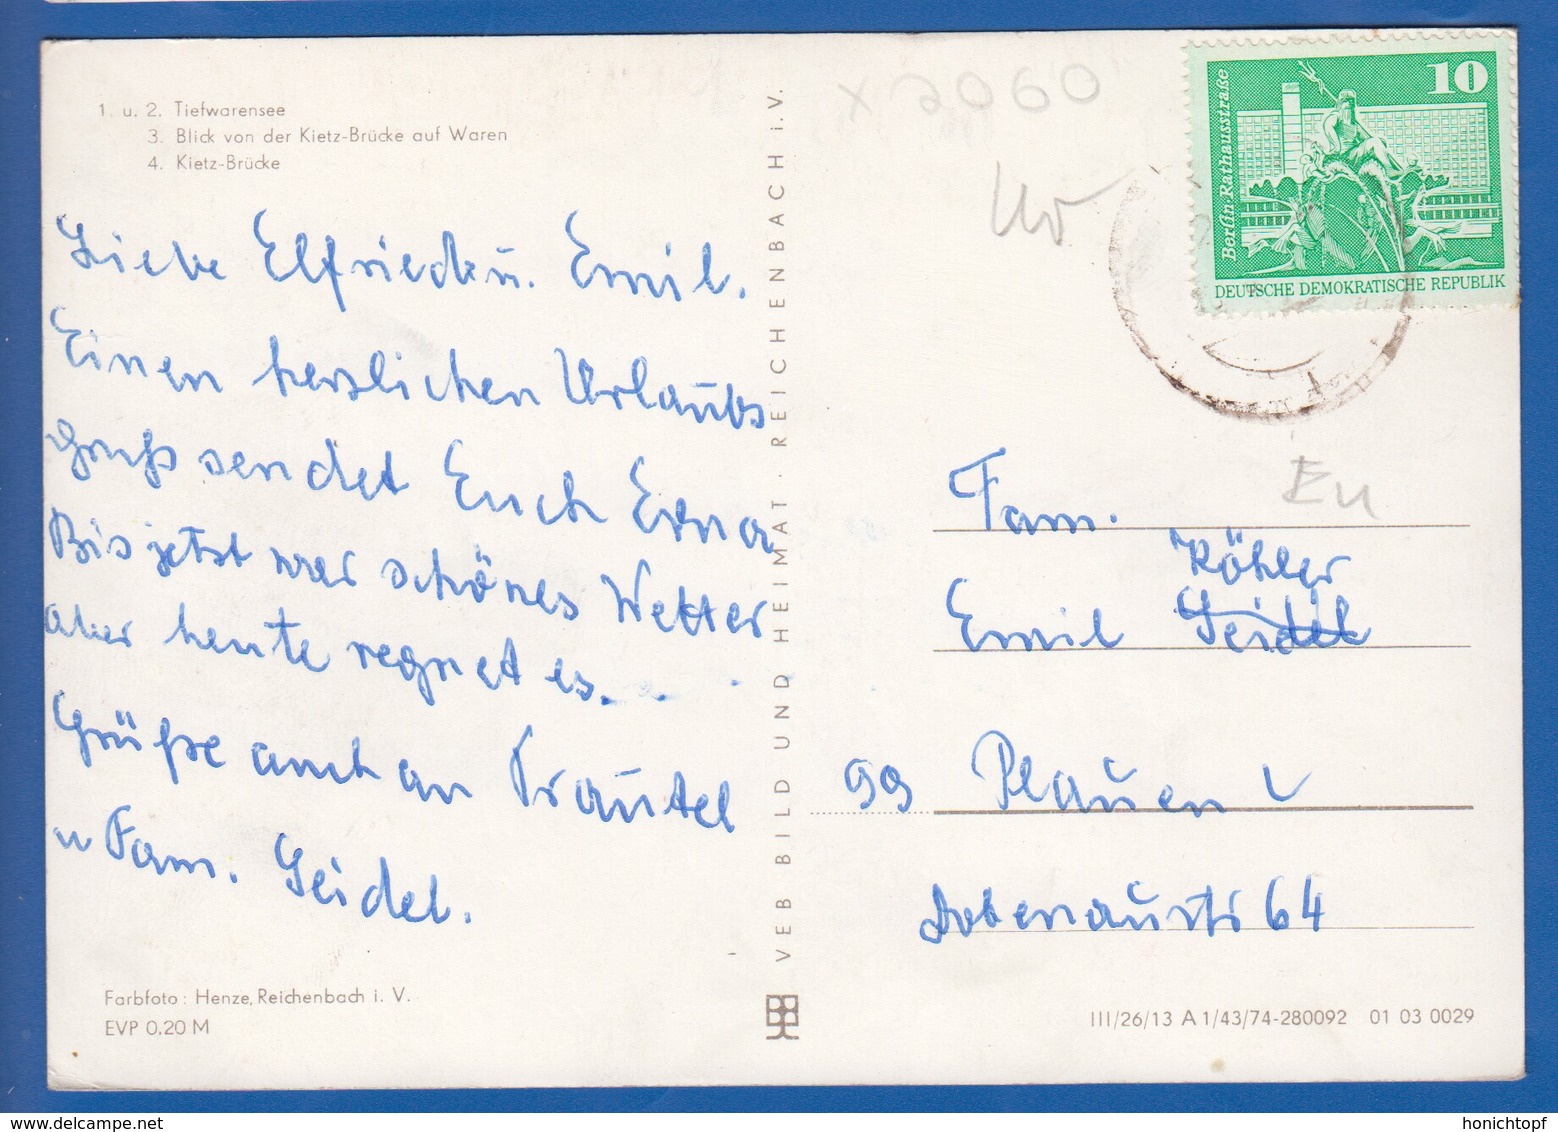 1. u. 2. Tiefwarensee
3. Blick von der Kietz-Brücke auf Waren
4. Kietz-Brücke
Liebe Elfriede u. Emil.
Einen herzlichen Urlaubs
gruß sendet Euch Erna
Bis jetzt war schönes Wetter
aber heute regnet es.
Grüße auch an Trautel
u Fam. Seidel.
Farbfoto: Henze, Reichenbach i. V.
EVP 0.20 M
VEB BILD UND HEIMAT · REICHENBACH i. V.
x 2060
10
Berlin · Rathausstraße
DEUTSCHE DEMOKRATISCHE REPUBLIK
Fam.
Köhler
Emil Seidel
99 Plauen
Dobenaustr 64
III/26/13 A 1/43/74-280092 01 03 0029
honichtopf